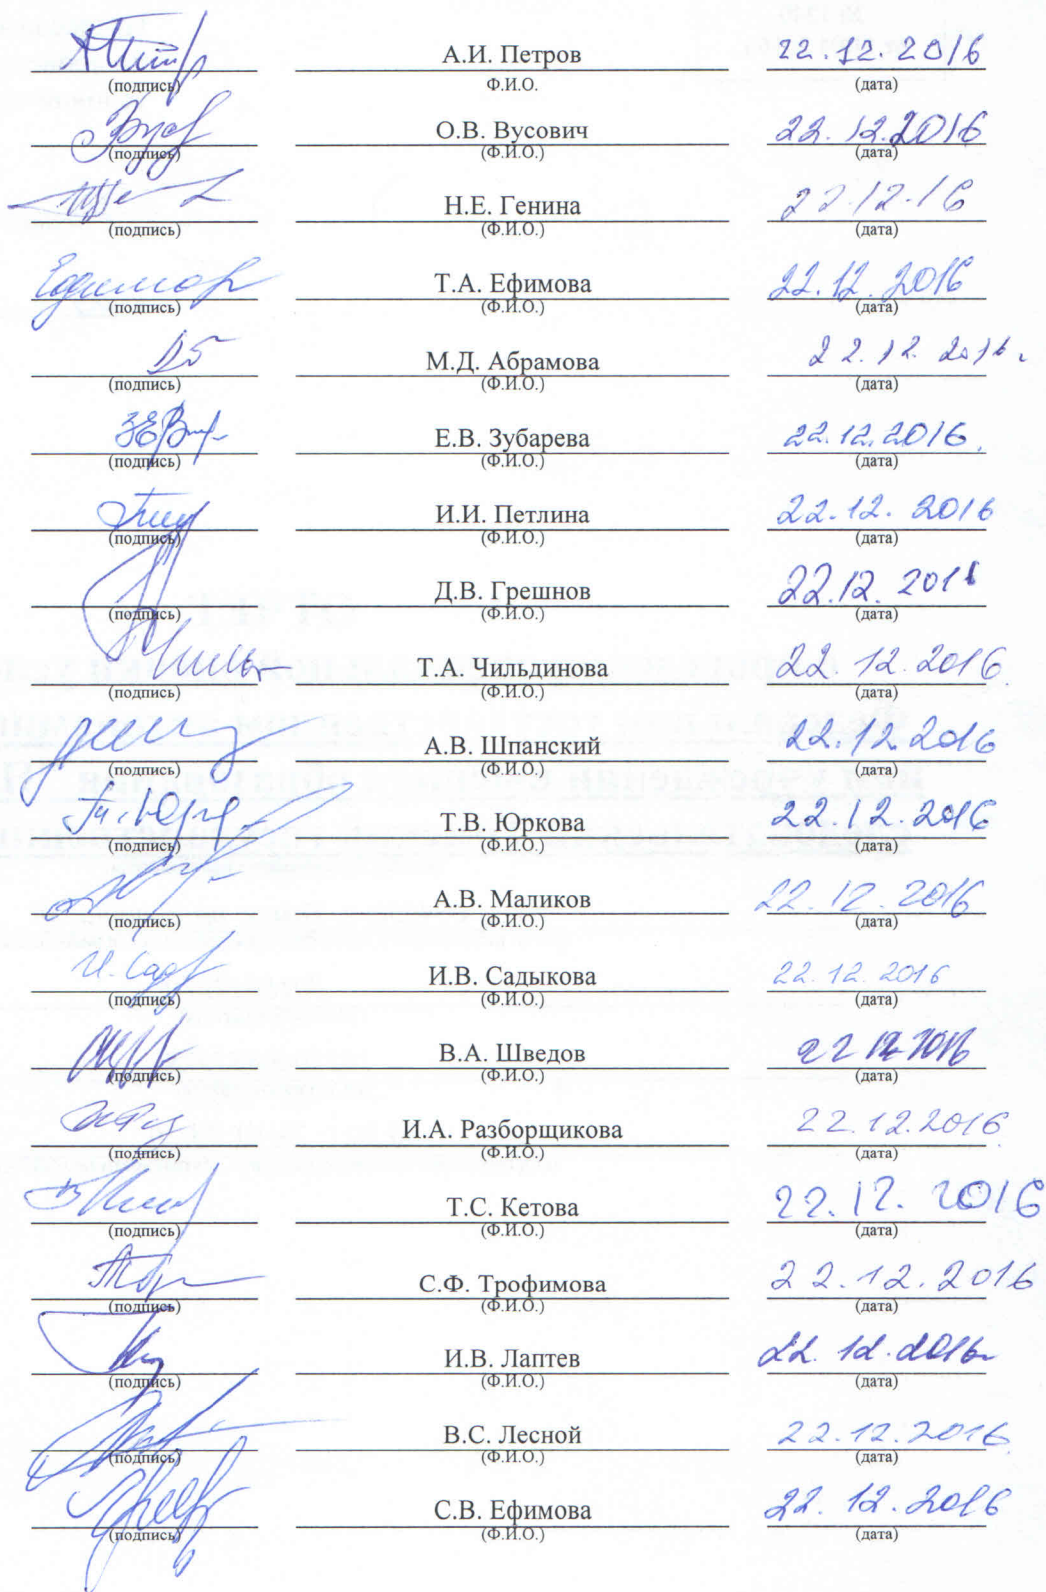 А.И. Петров 22.12.2016
(подпись) Ф.И.О. (дата)
О.В. Вусович 22.12.2016
(подпись) (Ф.И.О.) (дата)
Н.Е. Генина 22.12.16
(подпись) (Ф.И.О.) (дата)
Т.А. Ефимова 22.12.2016
(подпись) (Ф.И.О.) (дата)
М.Д. Абрамова 22.12.2016.
(подпись) (Ф.И.О.) (дата)
Е.В. Зубарева 22.12.2016.
(подпись) (Ф.И.О.) (дата)
И.И. Петлина 22.12.2016
(подпись) (Ф.И.О.) (дата)
Д.В. Грешнов 22.12.
(подпись) (Ф.И.О.) (дата)
Т.А. Чильдинова 22 12.2016.
(подпись) (Ф.И.О.) (дата)
А.В. Шпанский 22.12.2016
(подпись) (Ф.И.О.) (дата)
Т.В. Юркова 22.12.2016
(подпись) (Ф.И.О.) (дата)
А.В. Маликов 22.12.2016
(подпись) (Ф.И.О.) (дата)
И.В. Садыкова 22.12.2016
(подпись) (Ф.И.О.) (дата)
В.А. Шведов 22 12 2016
(подпись) (Ф.И.О.) (дата)
И.А. Разборщикова 22.12.2016
(подпись) (Ф.И.О.) (дата)
Т.С. Кетова 22.12.2016
(подпись) (Ф.И.О.) (дата)
С.Ф. Трофимова 22.12.2016
(подпись) (Ф.И.О.) (дата)
И.В. Лаптев 22.12.2016
(подпись) (Ф.И.О.) (дата)
В.С. Лесной 22.12.2016
(подпись) (Ф.И.О.) (дата)
С.В. Ефимова 22.12.2016
(подпись) (Ф.И.О.) (дата)